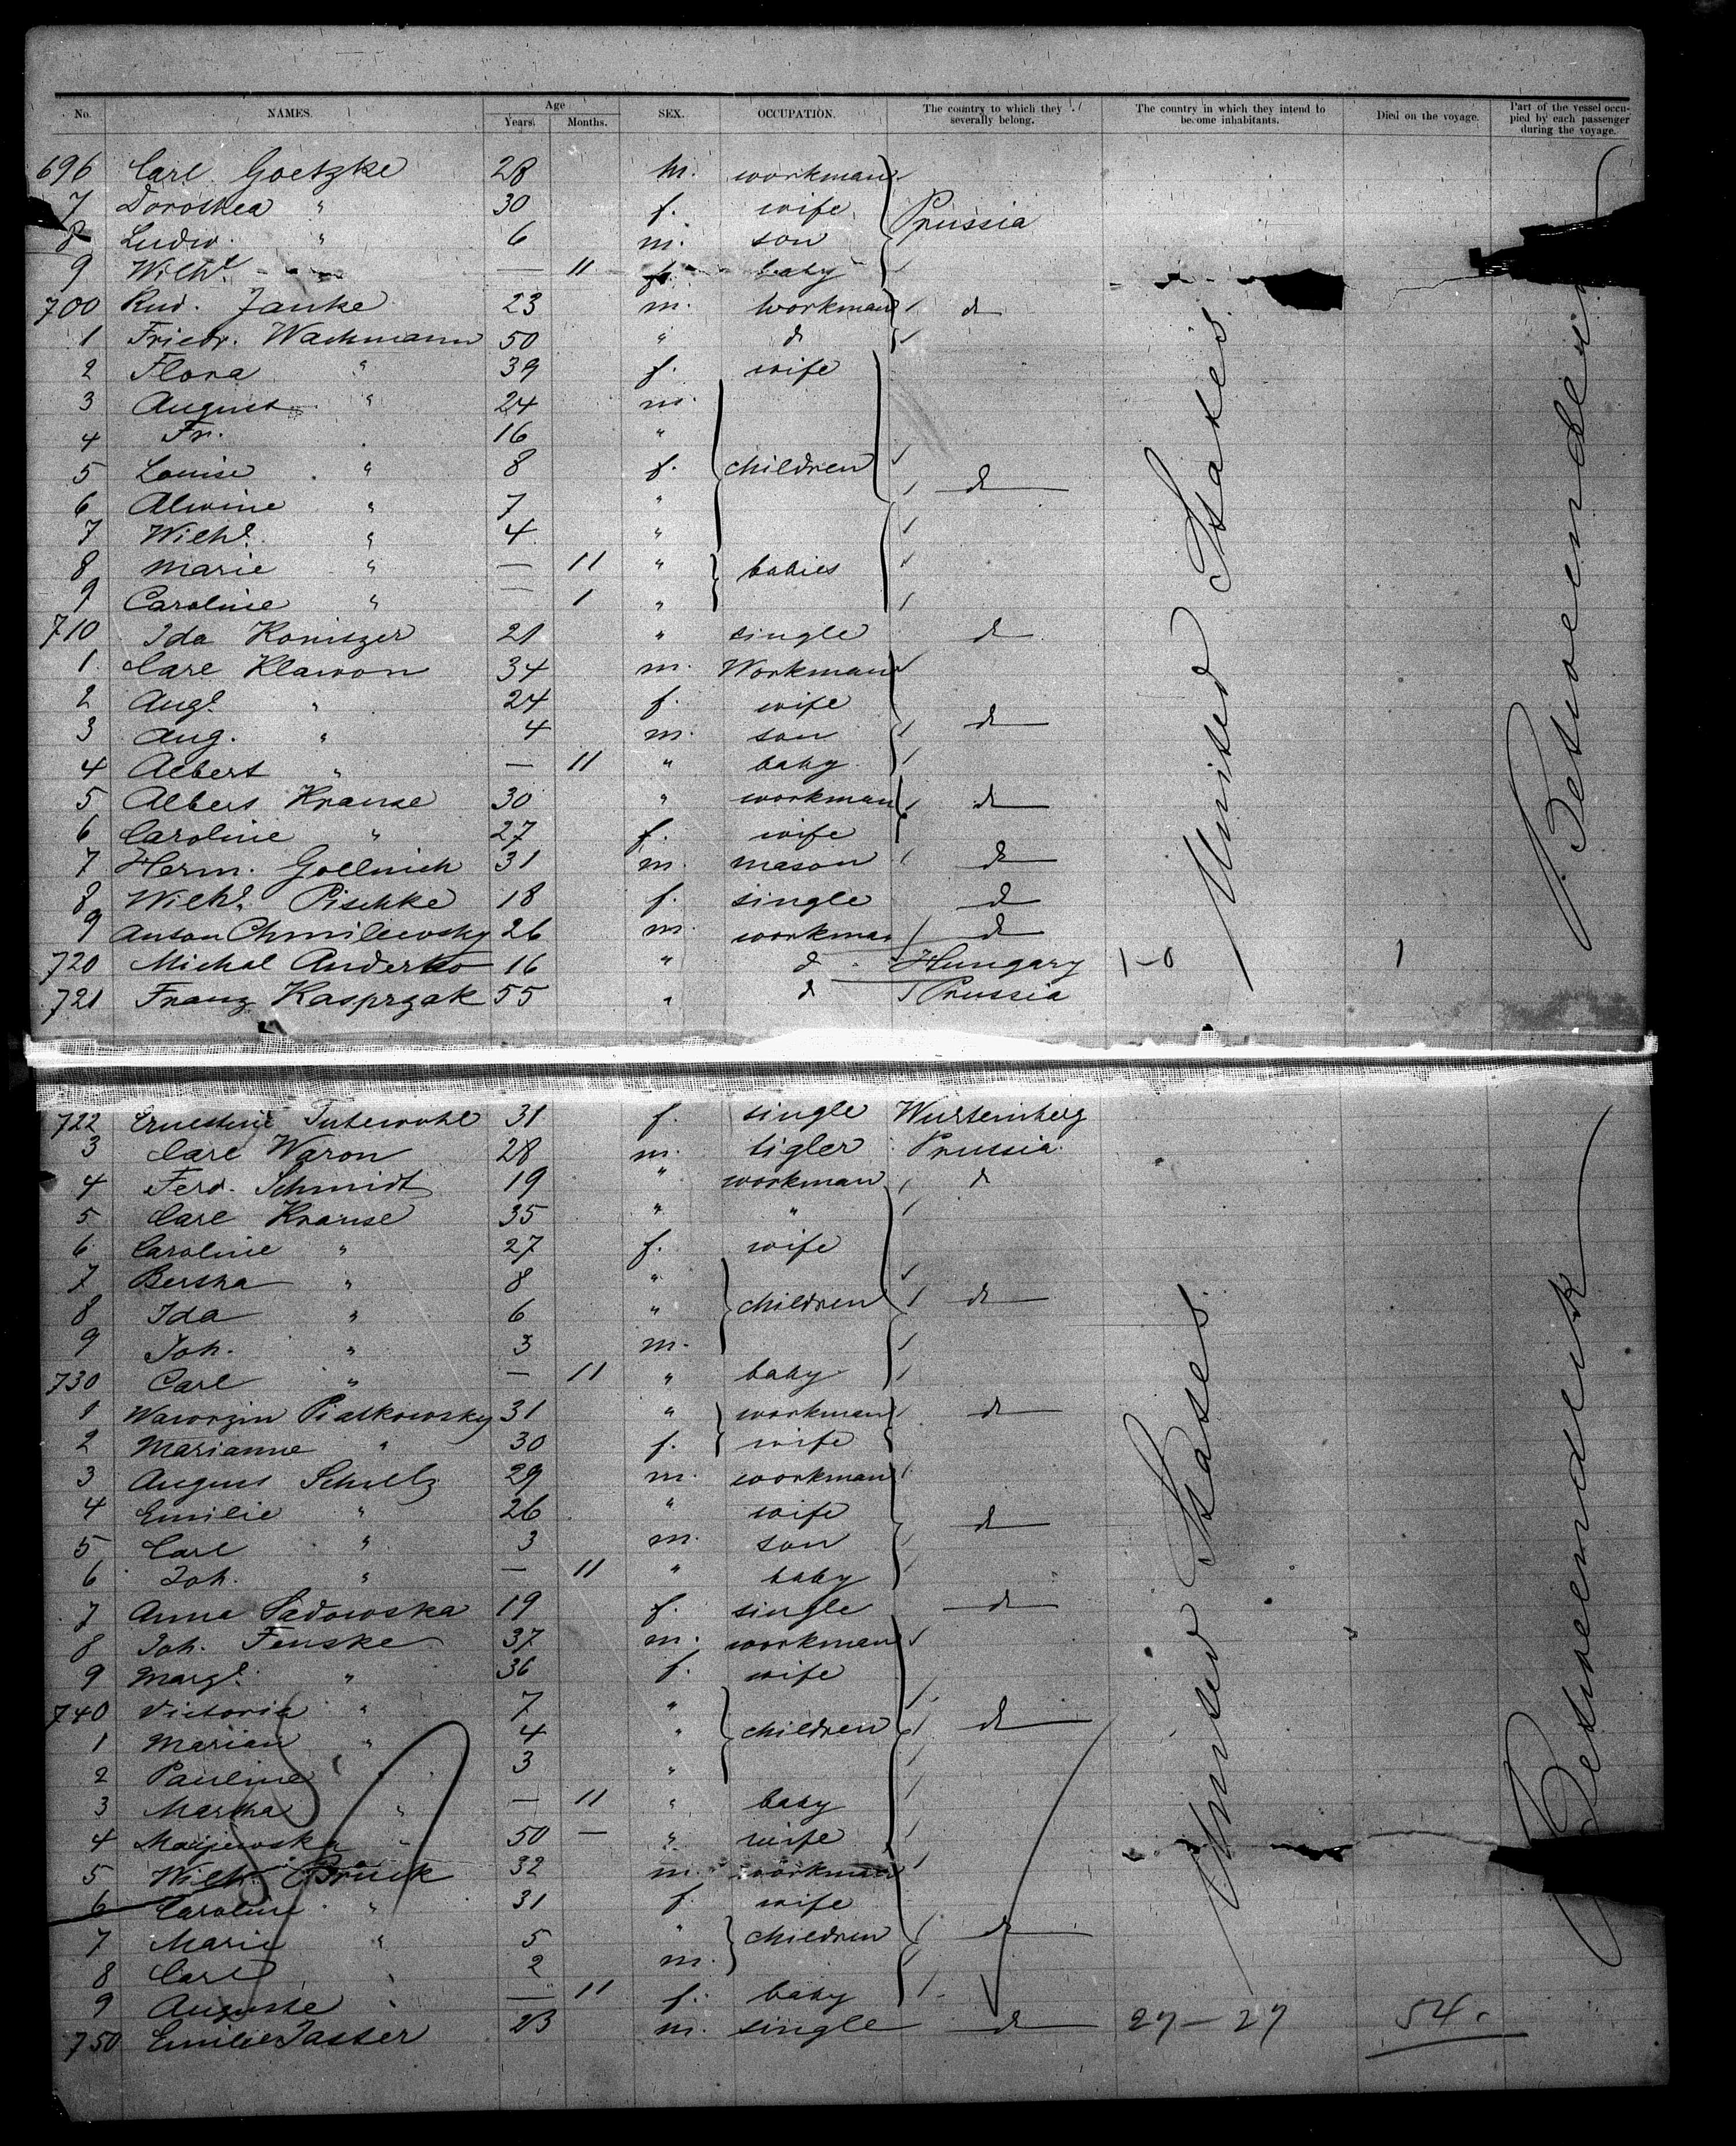 No. NAMES. Age Years. Months. SEX. OCCUPATION. The country to which they severally belong. The country in which they intend to become inhabitants. Died on the voyage. Part of the vessel occupied by each passenger during the voyage.
696 Carl Goetzke 28 m. workman
7 Dorothea " 30 f. wife Prussia
8 Ludw. " 6 m. son
9 Wilh. " — 11 f. baby
700 Rud. Janke 23 m. workman d
1 Friedr. Wachmann 50 " d
2 Flora " 39 f. wife
3 August " 24 m.
4 Fr. 16 "
5 Louise " 8 f. children d
6 Alwine " 7 "
7 Wilh. " 4 "
8 Marie " — 11 " babies
9 Caroline " — 1 "
710 Ida Konitzer 21 " single d
1 Carl Klawon 34 m. Workman
2 Aug. " 24 f. wife d
3 Aug. " 4 m. son
4 Albert " — 11 " baby
5 Albert Krause 30 " workman d
6 Caroline " 27 f. wife
7 Herm. Gollnick 31 m. mason d
8 Wilh. Pischke 18 f. single d
9 Anton Chmilewsky 26 m. workman d
720 Michal Anderko 16 " d Hungary 1-0 1
721 Franz Kasprzak 55 " d Prussia
United States
Betweendeck
722 Ernestine 31 f. single Wurtemberg
3 Carl Waron 28 m. tigler Prussia
4 Ferd. Schmidt 19 " workman d
5 Carl Krause 35 " "
6 Caroline " 27 f. wife
7 Bertha " 8 "
8 Ida " 6 " children d
9 Joh. " 3 m.
730 Carl " — 11 " baby
1 Wawrzin Piatkowsky 31 " workman d
2 Marianne " 30 f. wife
3 August Schultz 29 m. workman
4 Emilie " 26 " wife d
5 Carl " 3 m. son
6 Joh. " — 11 " baby
7 Anna Sadowska 19 f. single d
8 Joh. Fenske 37 m. workman
9 Marg. " 36 f. wife
740 Victoria " 7 "
1 Marian " 4 " children d
2 Pauline " 3 "
3 Martha " — 11 " baby
4 Majewska " 50 — " wife
5 Wilh. Brück 32 m. workman
6 Caroline " 31 f. wife
7 Marie " 5 " children d
8 Carl " 2 m.
9 Auguste " — 11 f. baby
750 Emilie Tasser 23 m. single d 27 - 27 54.
United States
Betweendeck